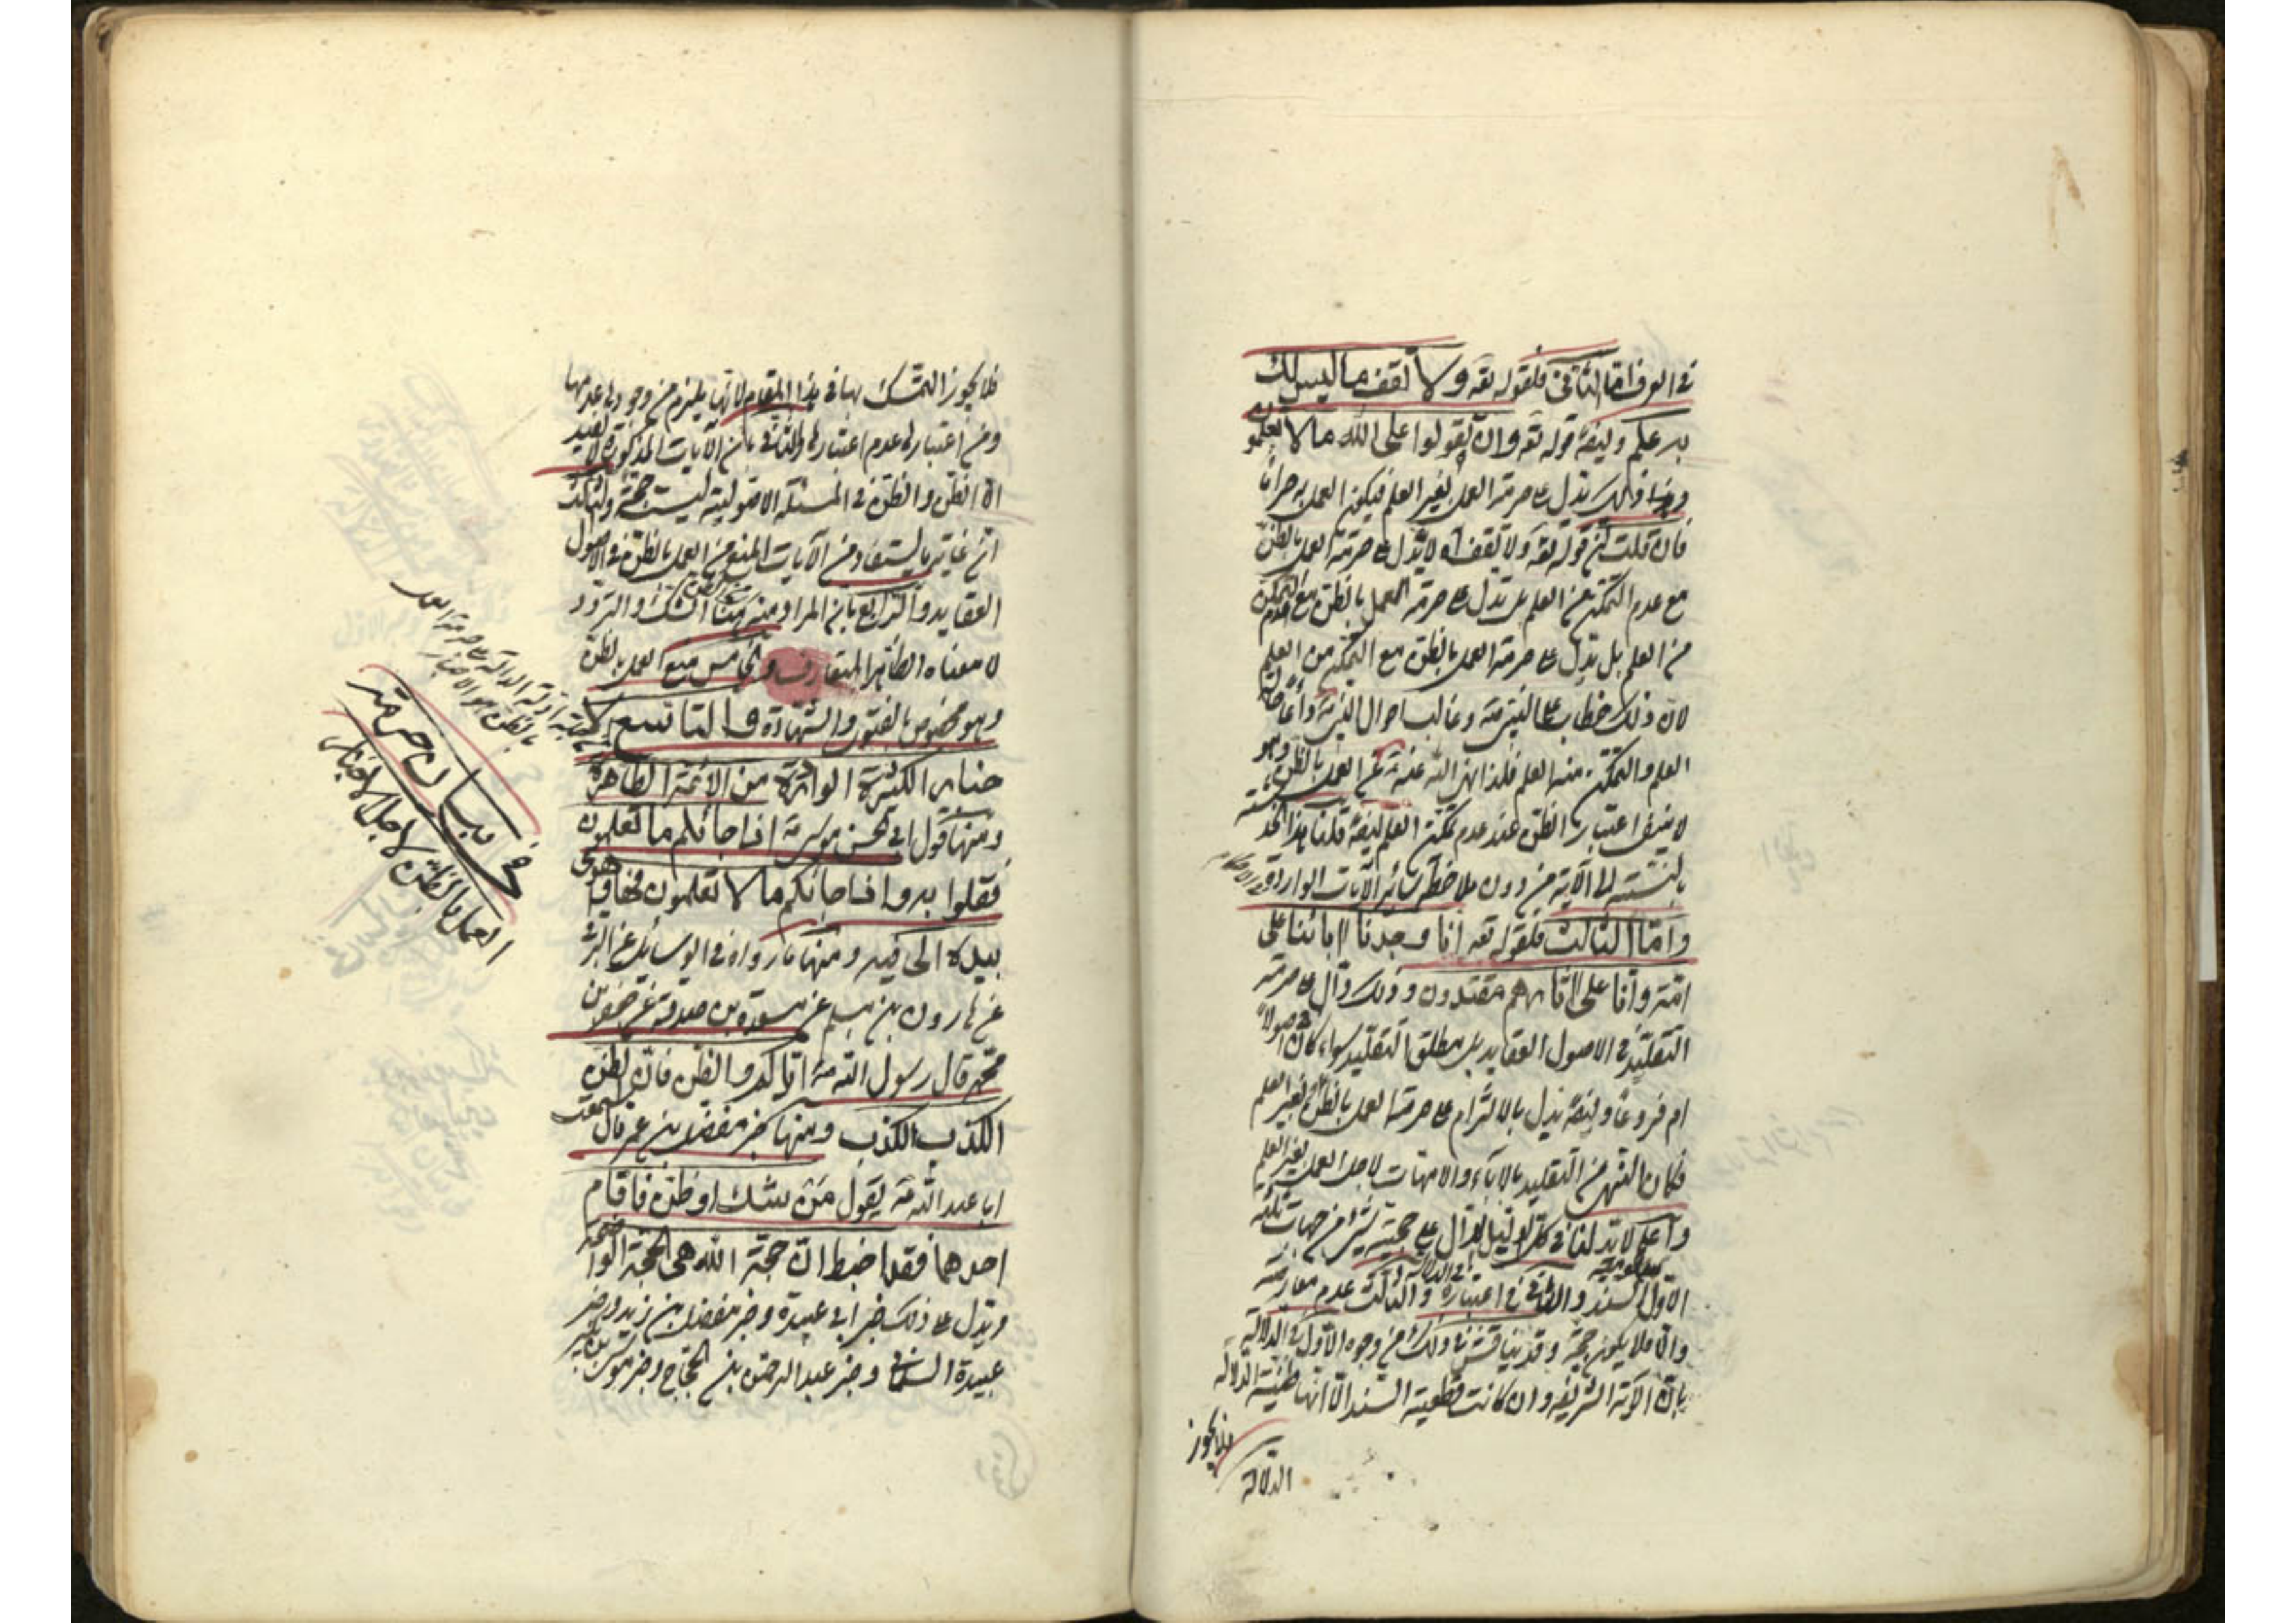 في العرف اما الثاني فلقوله تعه ولا تقف ما ليس لك
به علم وايضه قوله تعه وان تقولوا على الله ما لا تعلمون
وهذا وذلك تدل على حرمة العمل بغير العلم فيكون العمل به حراما
فان قلت ان قوله تعه ولا تقف اه لا تدل على حرمة العمل بالظن
مع عدم التمكن من العلم بل تدل على حرمة العمل بالظن مع التمكن
من العلم بل تدل على حرمة العمل بالظن مع التمكن من العلم
لان ذلك خطاب على النبي وغالب احوال النبي
العلم والتمكن منه العلم فلذا نهى الله عنه عن العمل بالظن وهو
لا ينفى اعتبار الظن عند عدم تمكن العلم ايضه قلنا هذا
بالنسبة الى الآية من دون ملاحظة سائر الآيات الواردة
واما الثالث فلقوله تعه انا وجدنا اباءنا على
امة وانا على اثارهم مقتدون وذلك دال على حرمة
التقليد في الاصول العقايد بل مطلق التقليد سواء كان اصولا
ام فروعا وايضه يدل بالالتزام على حرمة العمل بالظن بغير العلم
فكان النهي من التقليد بالاباء والامهات لاجل العمل بغير العلم
واعلم لا بد لنا في كل دليل الدال على حجية شئ من جهات ثلثة
الاول السند والثاني في اعتباره والثالث عدم معارضه
والا فلا يكون حجة وقد يناقش في ذلك من وجوه الاول في الدلالة
بان الآية الشريفه وان كانت قطعية السند الا انها ظنية الدلالة
فلا يجوز
الدلالة
فلا يجوز التمسك بها في هذا المقام لانها يلزم من وجودها عدمها
ومن اعتبارها عدم اعتبارها والثاني بان الآيات المذكورة لا تفيد
الا الظن والظن في المسئلة الاصولية ليست حجة والثالث
ان غاية ما يستفاد من الآيات المنع من العمل بالظن في الاصول
العقايد والرابع بان المراد منه هنا الشك والتردد
لا معناه الظاهر المتعارف والخامس منع العمل بالظن
وهو مخصوص بالفتوى والشهادة والتاسع
خبار الكثيرة الواردة من الائمة الطاهرة
ومنها قول ابي الحسن موسى اذا جائكم ما تعلمون
فقولوا به واذا جائكم ما لا تعلمون فها واهوى
بيده الى فيه ومنها ما رواه في الوسائل عن
عن هارون بن مسلم عن مسعدة بن صدقة عن جعفر بن
محمد قال رسول الله اياكم والظن فان الظن
الكذب الكذب ومنها خبر مفضل بن عمر قال سمعت
ابا عبد الله يقول من شك او ظن فاقام
احدهما فقد احبط ان حجة الله هى الحجة الواضحة
ويدل على ذلك خبر ابي عبيدة وخبر مفضل بن زيد وخبر
عبيدة السلماني وخبر عبد الرحمن بن الحجاج وخبر موسى بن بكير
في بيان حرمة
العمل بالظن لاجل الاخبار